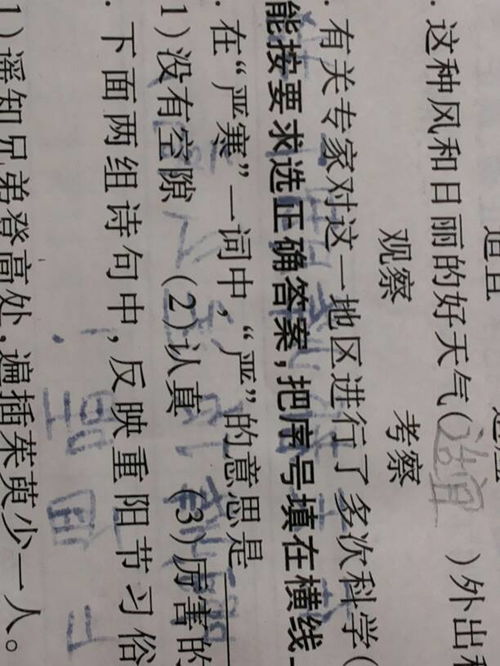 适宜
. 这种风和日丽的好天气(适宜 )外出
观察 考察
. 有关专家对这一地区进行了多次科学(
能按要求选正确答案,把序号填在横线
. 在“严寒”一词中,“严”的意思是
1)没有空隙 (2)认真 (3)厉害的
. 下面两组诗句中,反映重阳节习俗
1)遥知兄弟登高处,遍插茱萸少一人。